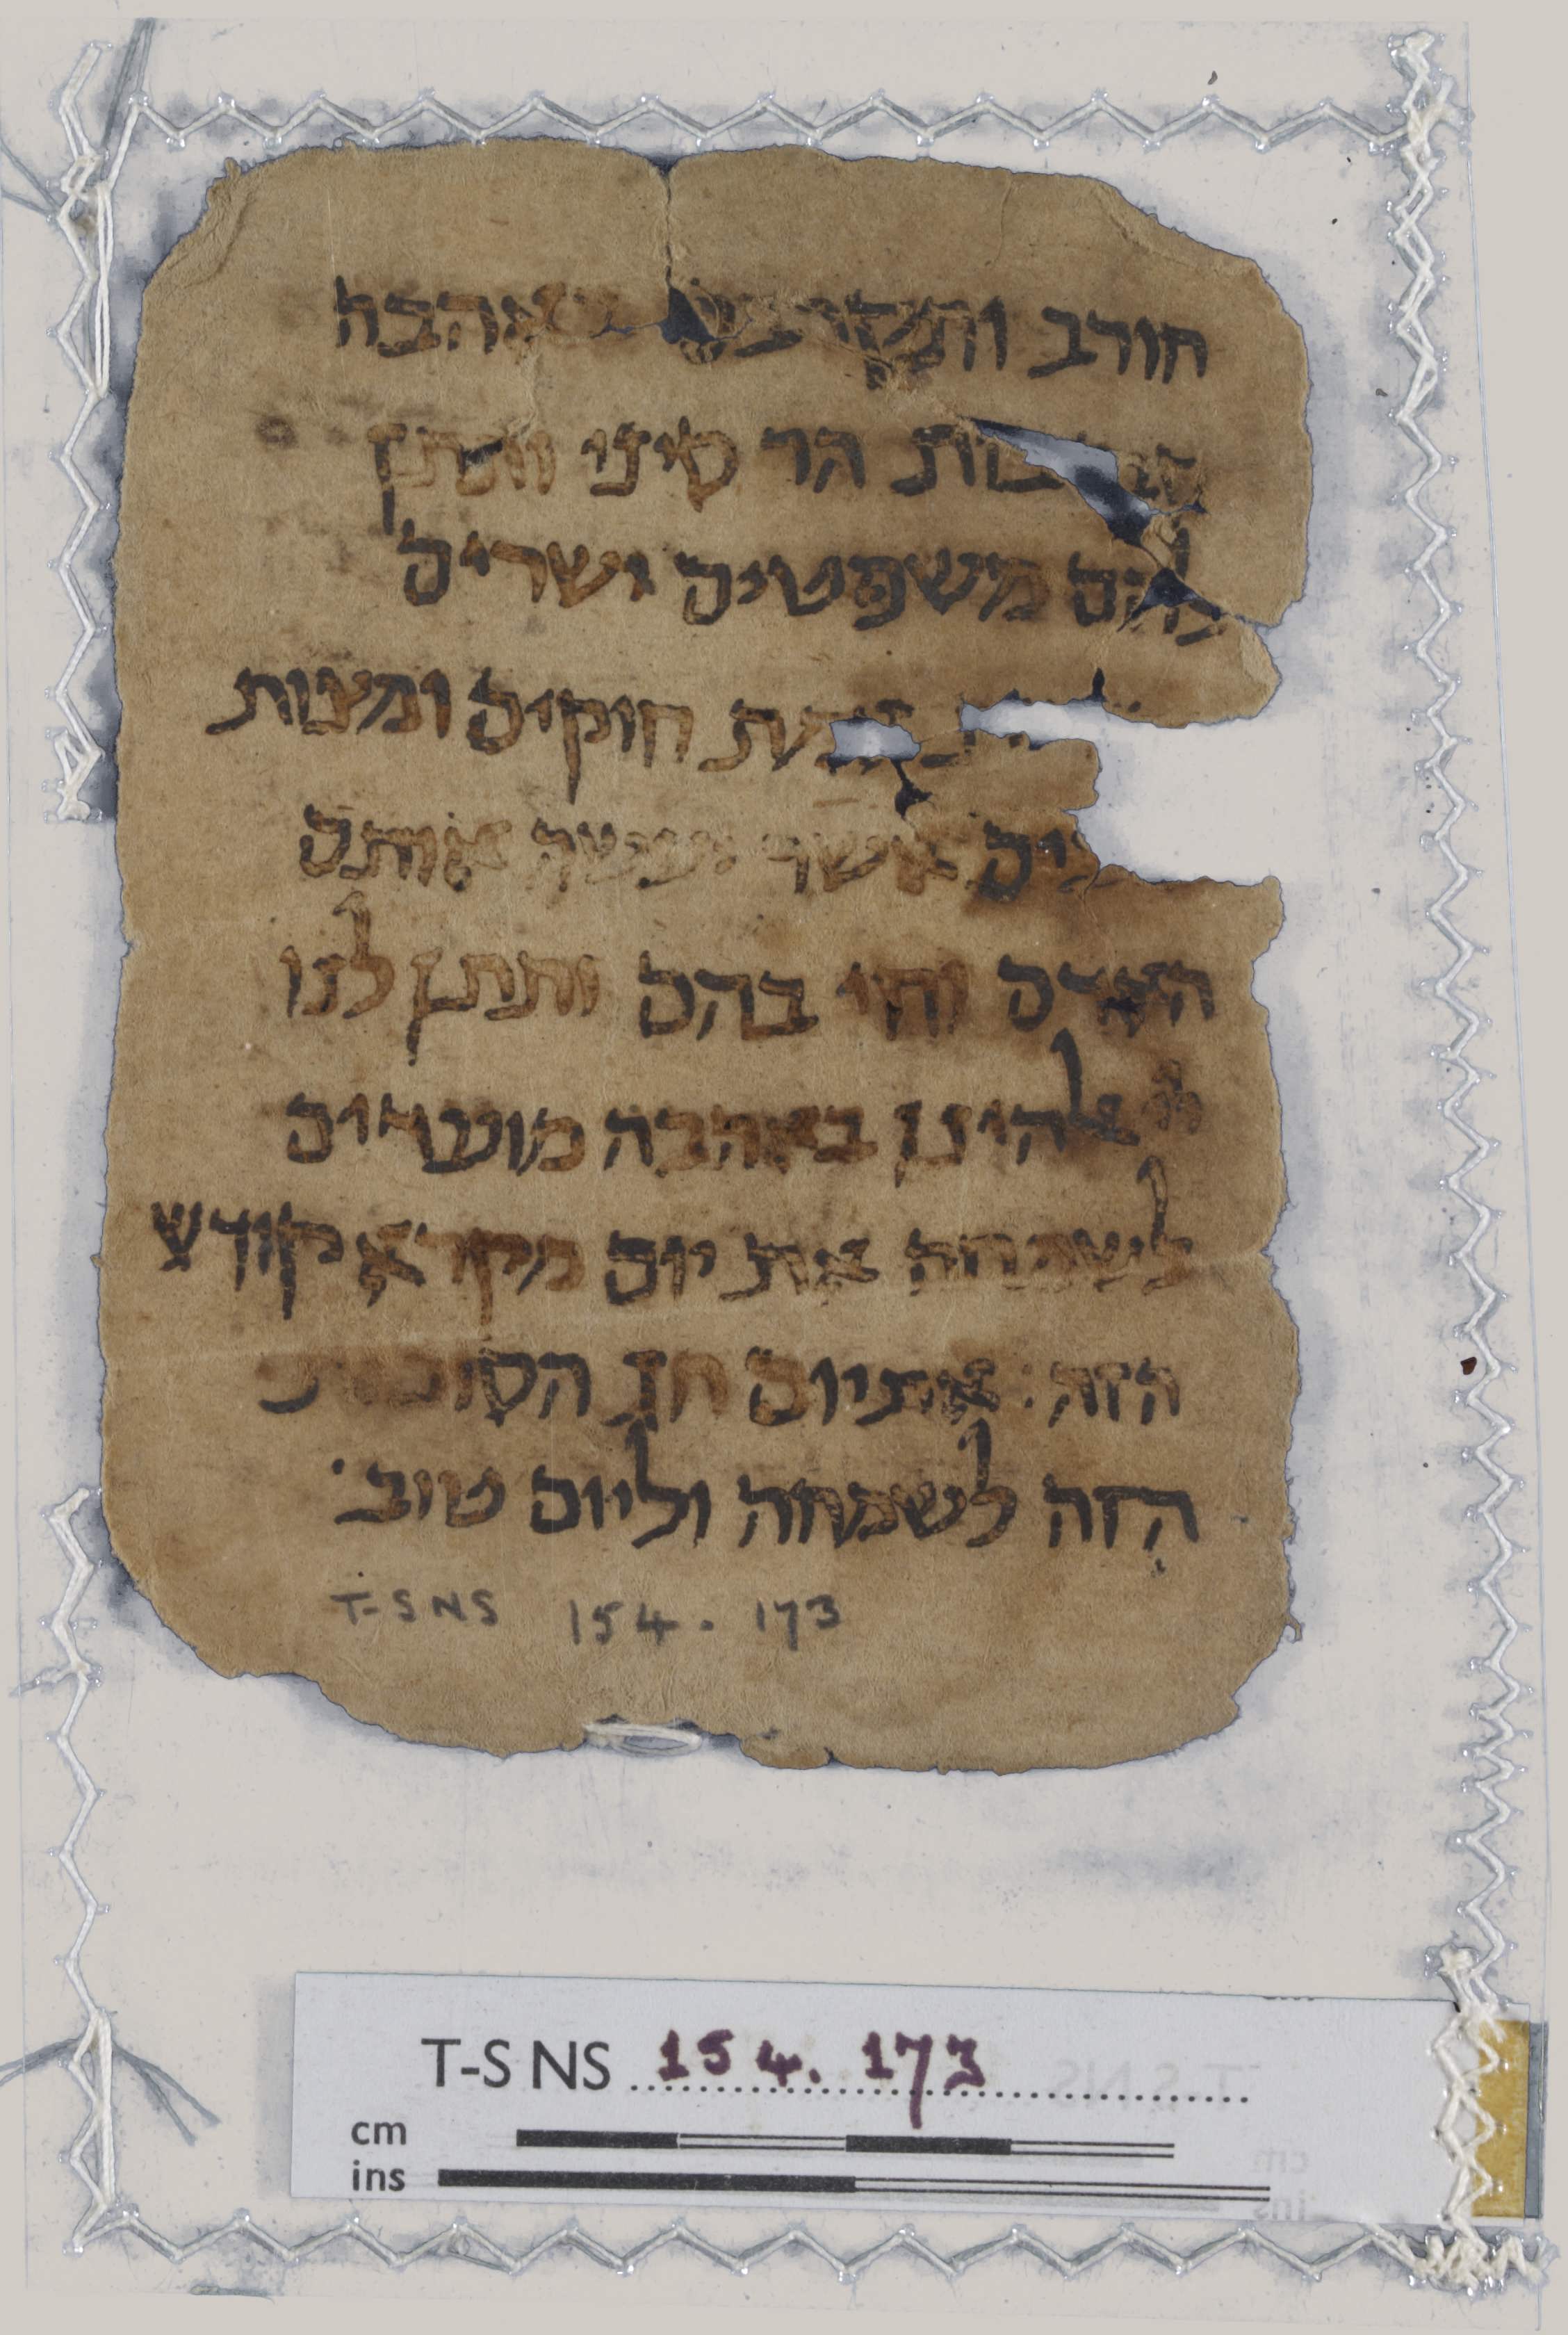 חורב ותקרבם באהבה
סביבות הר סיני ותתן
להם משפטים ישרים
אמת חוקים ומצות
טובים אשר יעשה אותם
האדם וחי בהם ותתן לנו
ייי אלהינו באהבה מועדים
לשמחה את יום מקרא קודש
הזה : את יום חג הסוכות
הזה לשמחה וליום טוב
T-S NS 154. 173
T-S NS 154. 173
cm
ins